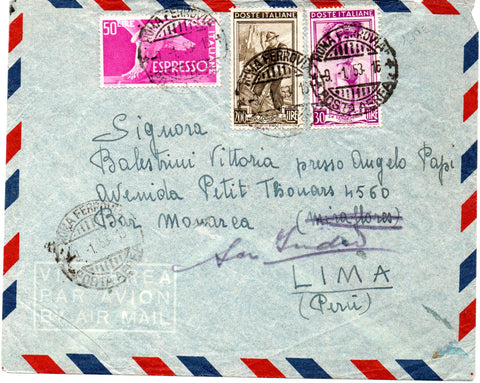 50 LIRE
ESPRESSO
POSTE ITALIANE
200 LIRE
POSTE ITALIANE
30 LIRE
ROMA FERROVIA
9.-1.53.16
POSTA AEREA
Signora
Balestrini Vittoria presso Angelo Papi
Avenida Petit Thouars 4560
Bar Monarca (Miraflores)
San Isidro
LIMA
(Perú)
VIA AEREA
PAR AVION
BY AIR MAIL